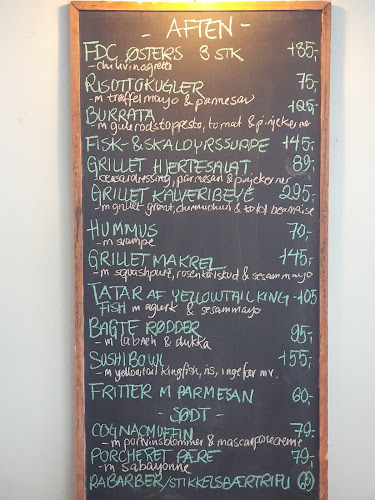 - AFTEN -
FDC ØSTERS 3 STK 135,-
- chilivinagrette
RISOTTOKUGLER 75,-
- m trøffelmayo & parmesan
BURRATA 125,-
- m gulerodstoppesto, tomat & pinjekerne
FISK- & SKALDYRSSUPPE 145,-
GRILLET HJERTESALAT 89,-
- ceasardressing, parmesan & pinjekerner
GRILLET KALVERIBEYE 295,-
- m grillet grønt, & bearnaise
HUMMUS 70,-
- m svampe
GRILLET MAKREL 145,-
- m squashpuré, rosenkålskud & sesammayo
TATAR AF YELLOWTAIL KING -105
FISH m agurk & sesammayo
BAGTE RØDDER 95,-
- m labneh & dukka
SUSHIBOWL 155,-
- m yellowtail kingfish, ris, ingefær mv.
FRITTER M PARMESAN 60,-
- SØDT -
COGNACMUFFIN 79,-
- m portvinsblommer & mascarponecreme
PORCHERET PÆRE 79,-
- m sabayonne
RABARBER/STIKKELSBÆRTRIFLI